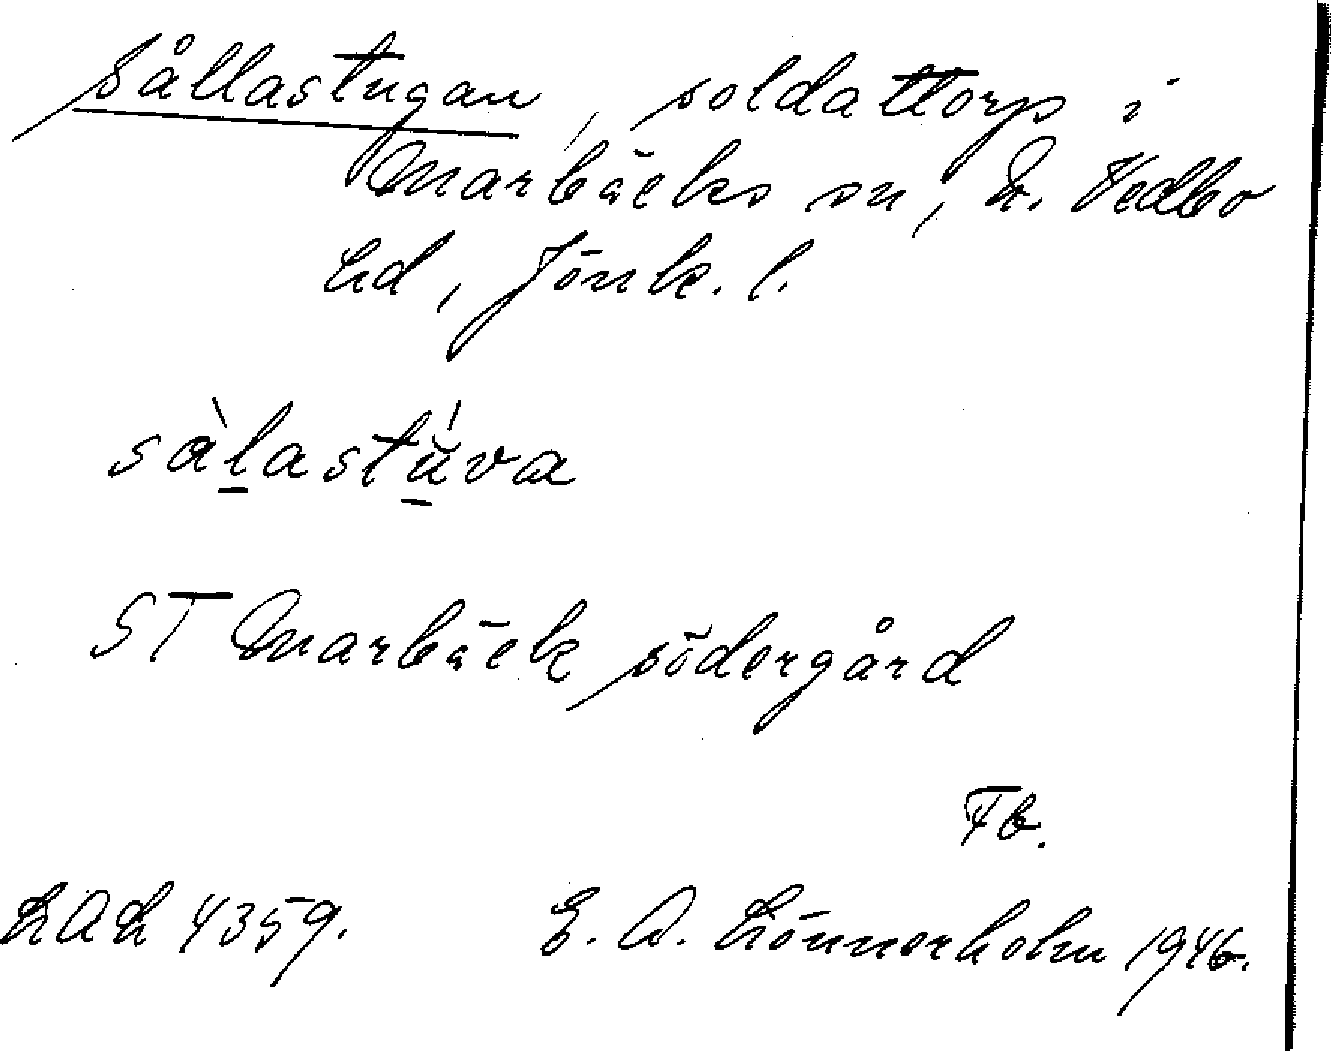 Sållastugan, soldattorp i
Marbäcks sn, N. Vedbo
hd, Jönk. l.
sàlastúva
ST Marbäck södergård
Fb.
LAL 4359. E. A. Lönnerholm 1946.